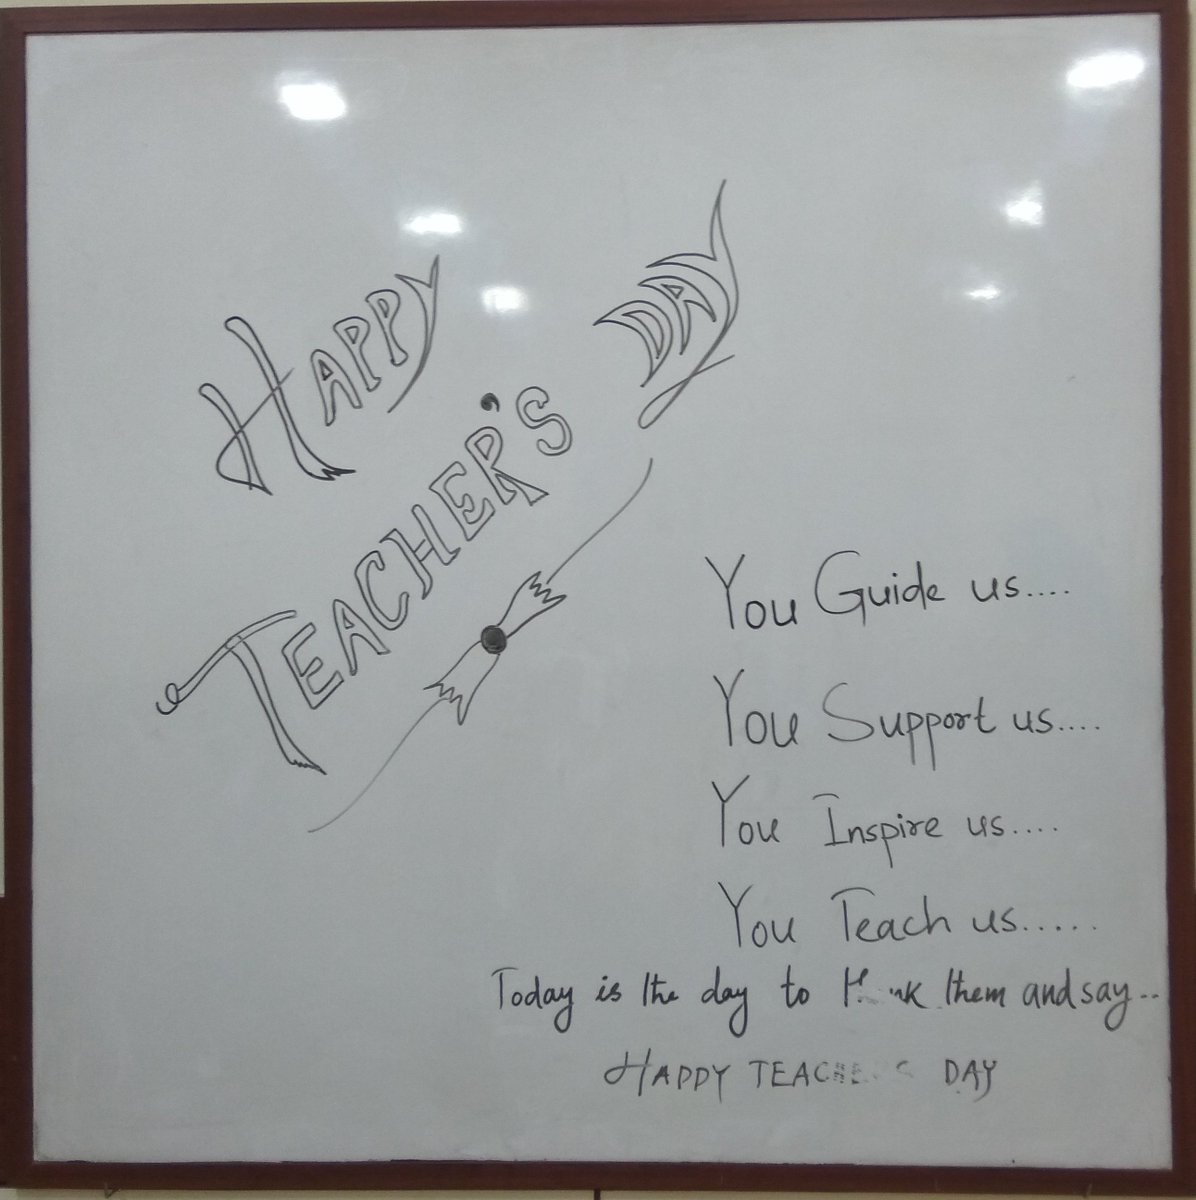 HAPPY
TEACHER'S DAY
You Guide us....
You Support us....
You Inspire us....
You Teach us.....
Today is the day to thank them and say..
HAPPY TEACHERS DAY